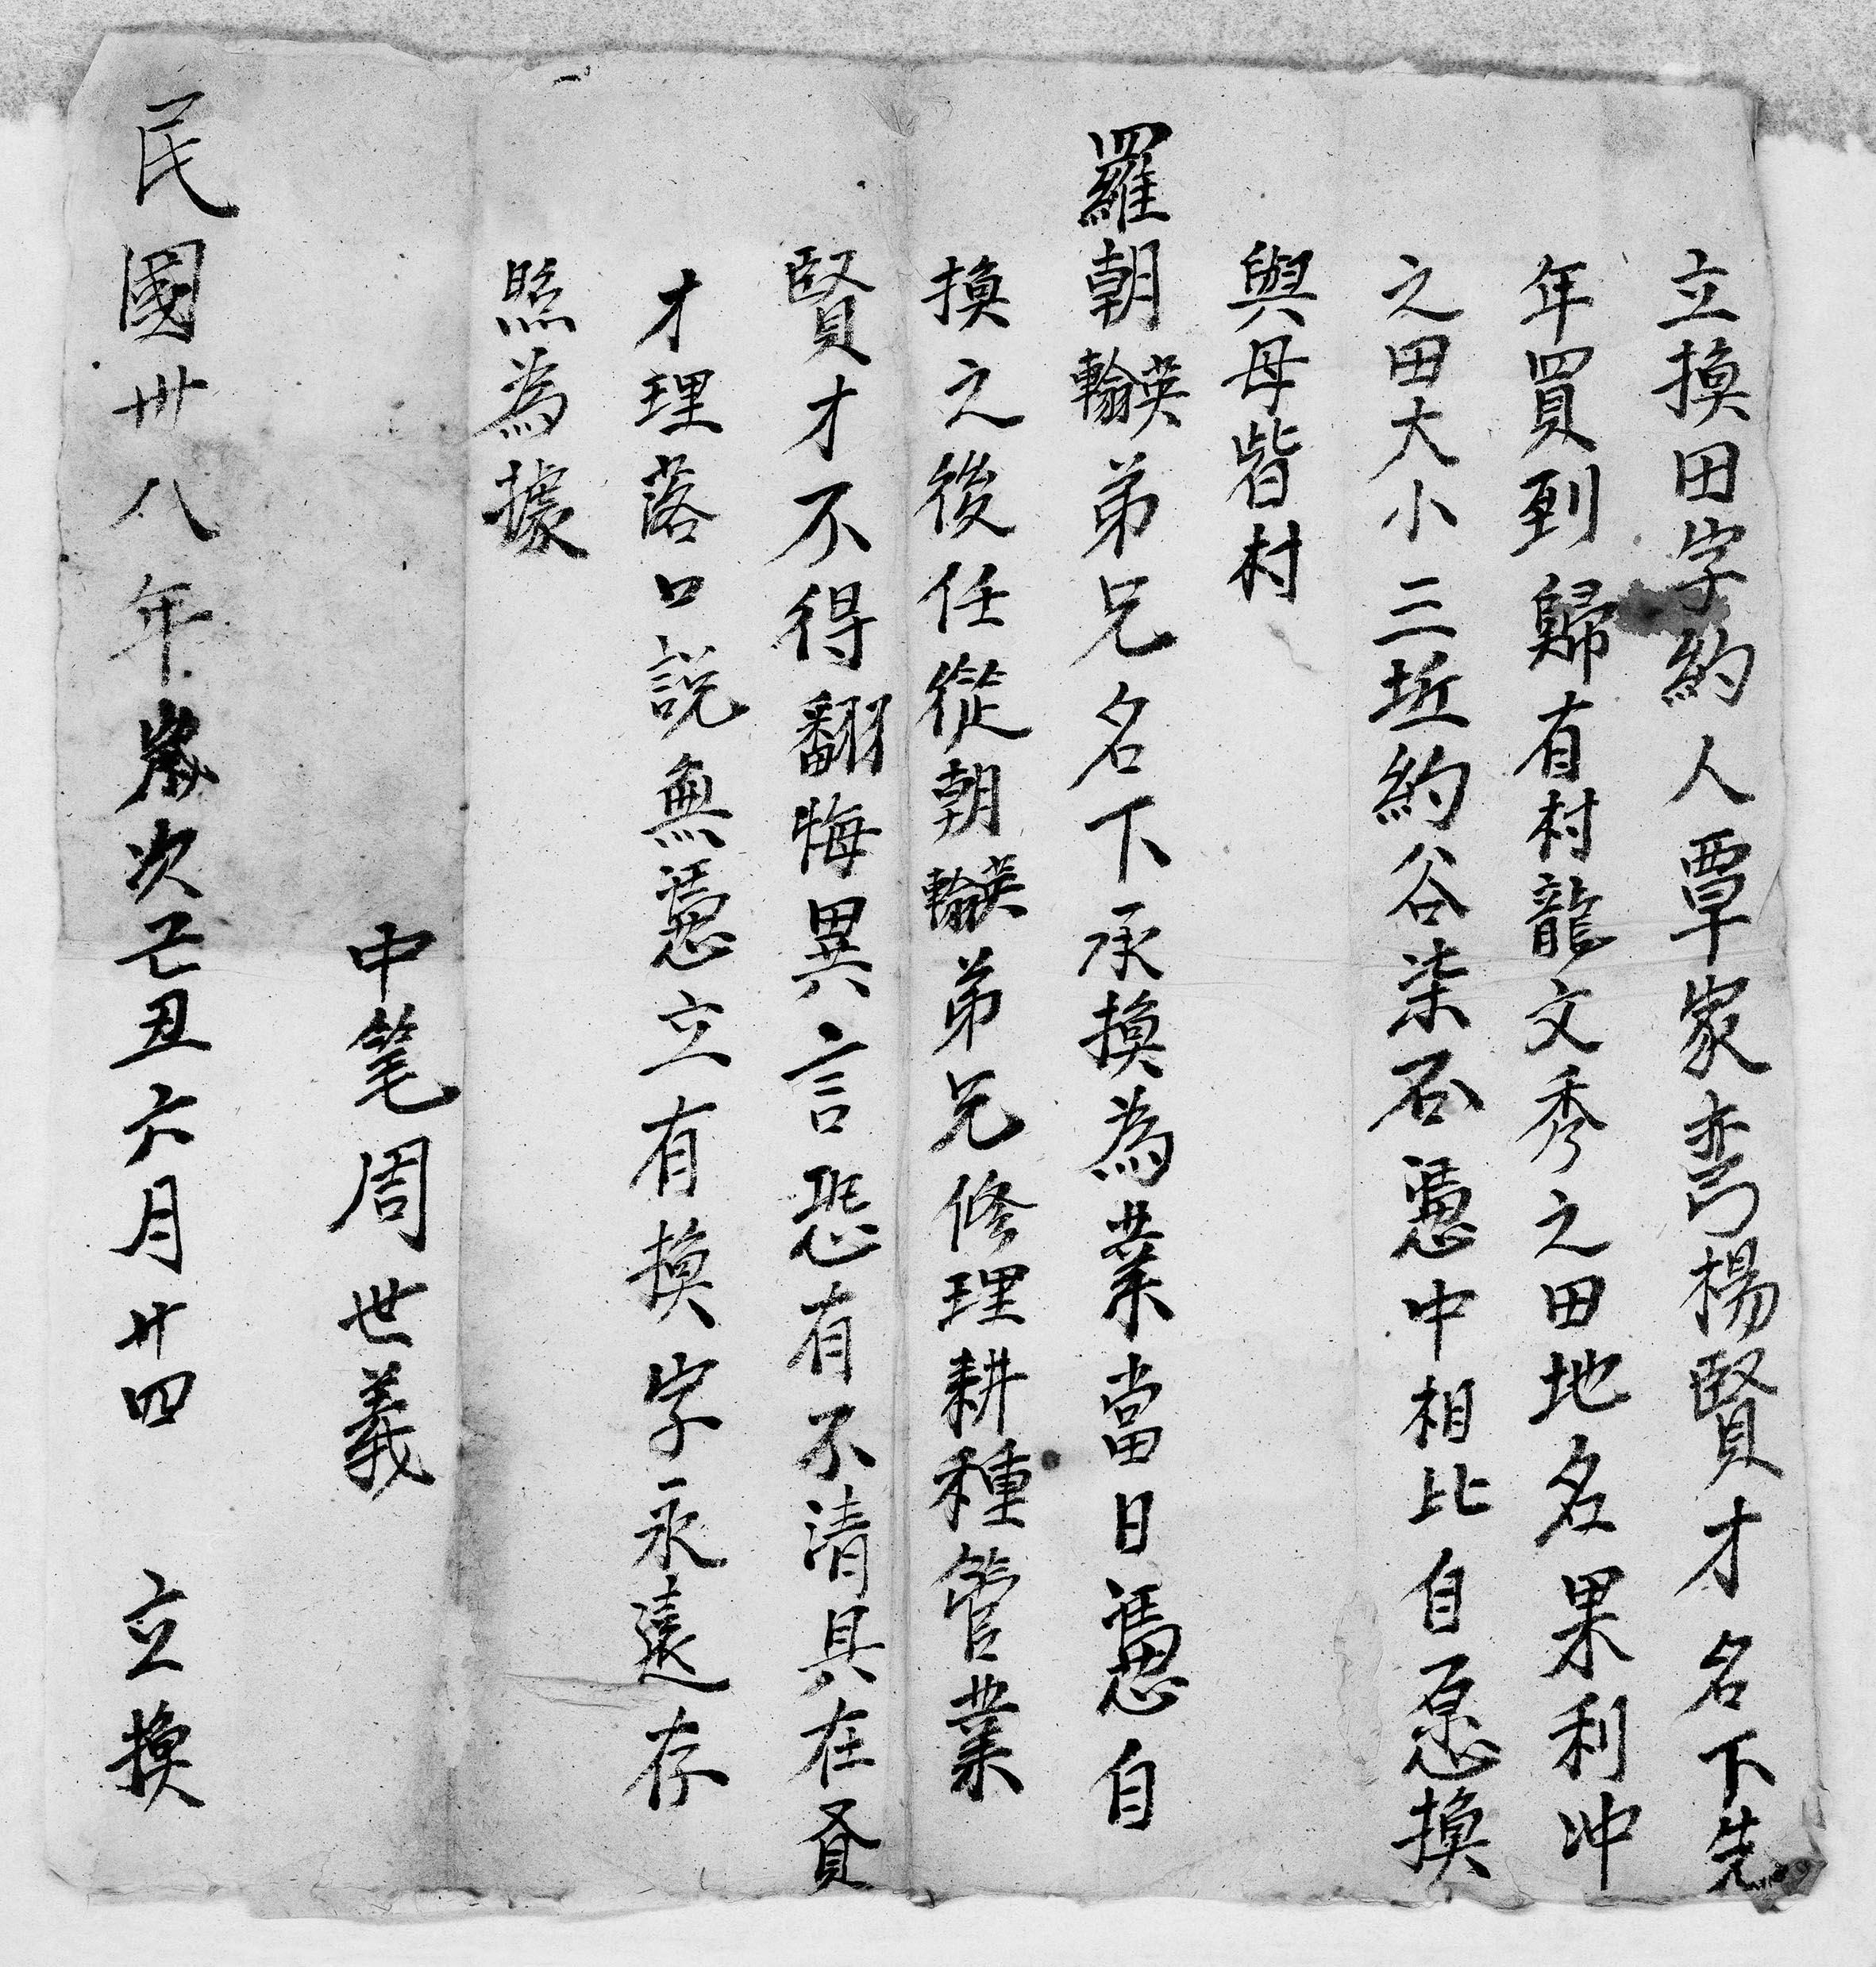 立換田字約人覃家弯楊賢才名下先
年買到歸有村龍文秀之田地名果利冲
之田大小三坵約谷柒石憑中相比自愿換
與母砦村
羅朝英翰弟兄名下承換為業當日憑自
換之後任從朝英翰弟兄修理耕種管業
賢才不得翻悔異言恐有不清具在賢
才理落口説無憑立有換字永遠存
照為據
中筆周世義
民國卅八年歲次己丑六月廿四 立換